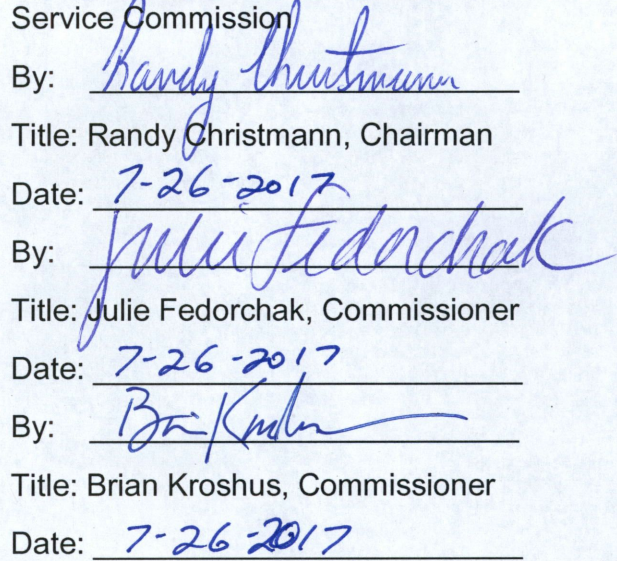 Service Commission
By: Randy Christmann
Title: Randy Christmann, Chairman
Date: 7-26-2017
By: Julie Fedorchak
Title: Julie Fedorchak, Commissioner
Date: 7-26-2017
By: Brian Kroshus
Title: Brian Kroshus, Commissioner
Date: 7-26-2017